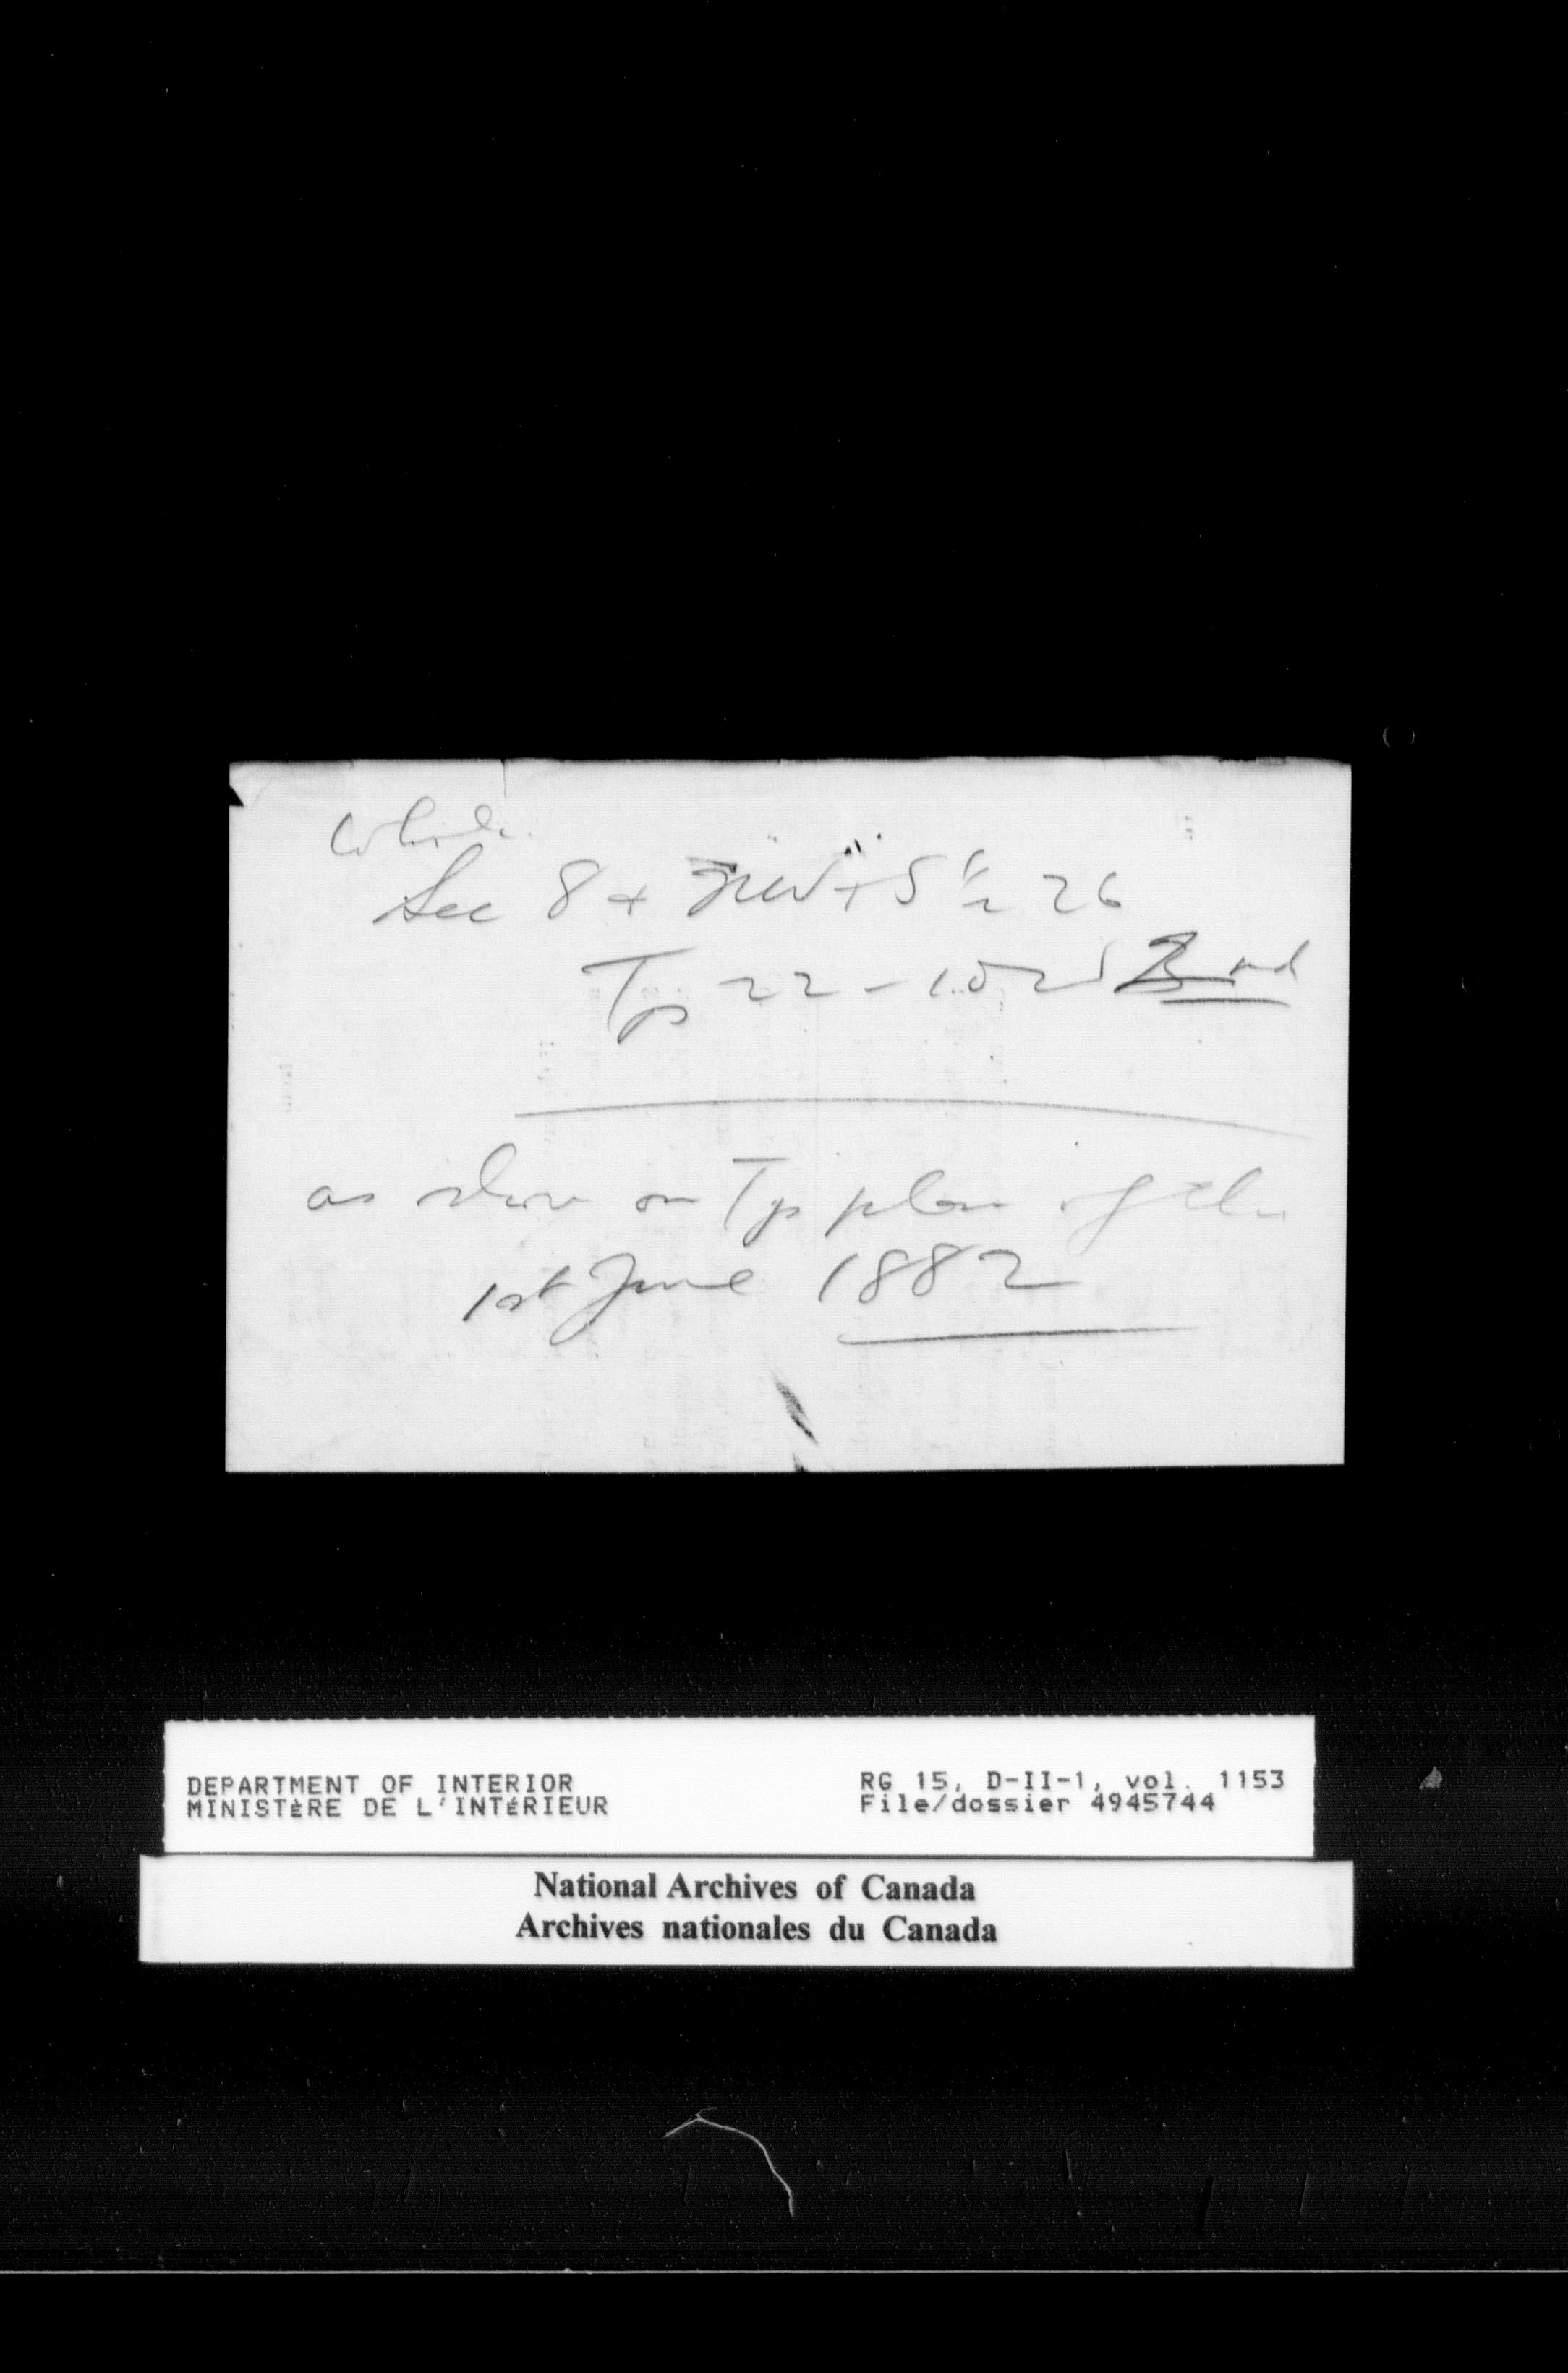 Whole
Sec 8 + NW + S 1/2 26
Tp 22 - 10 2nd
as shown on Tp plan of the
1st June 1882
DEPARTMENT OF INTERIOR
MINISTÈRE DE L'INTÉRIEUR
RG 15, D-II-1, vol. 1153
File/dossier 4945744
National Archives of Canada
Archives nationales du Canada